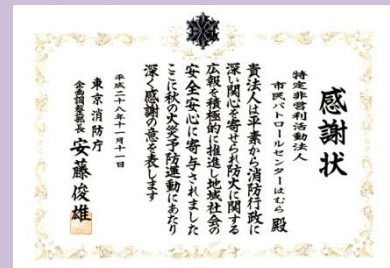 感謝状
特定非営利活動法人
市民パトロールセンターはむら 殿
貴法人は平素から消防行政に
深い関心を寄せられ防火に関する
広報を積極的に推進し地域社会の
安全安心に寄与されました
ここに秋の火災予防運動にあたり
深く感謝の意を表します
平成二十八年十一月十一日
東京消防庁
企画調整部長 安藤俊雄